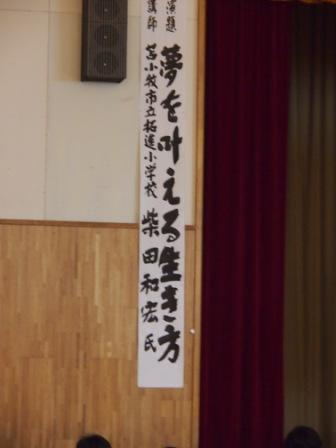 演題 夢を叶える生き方
講師 苫小牧市立拓進小学校 柴田和宏氏